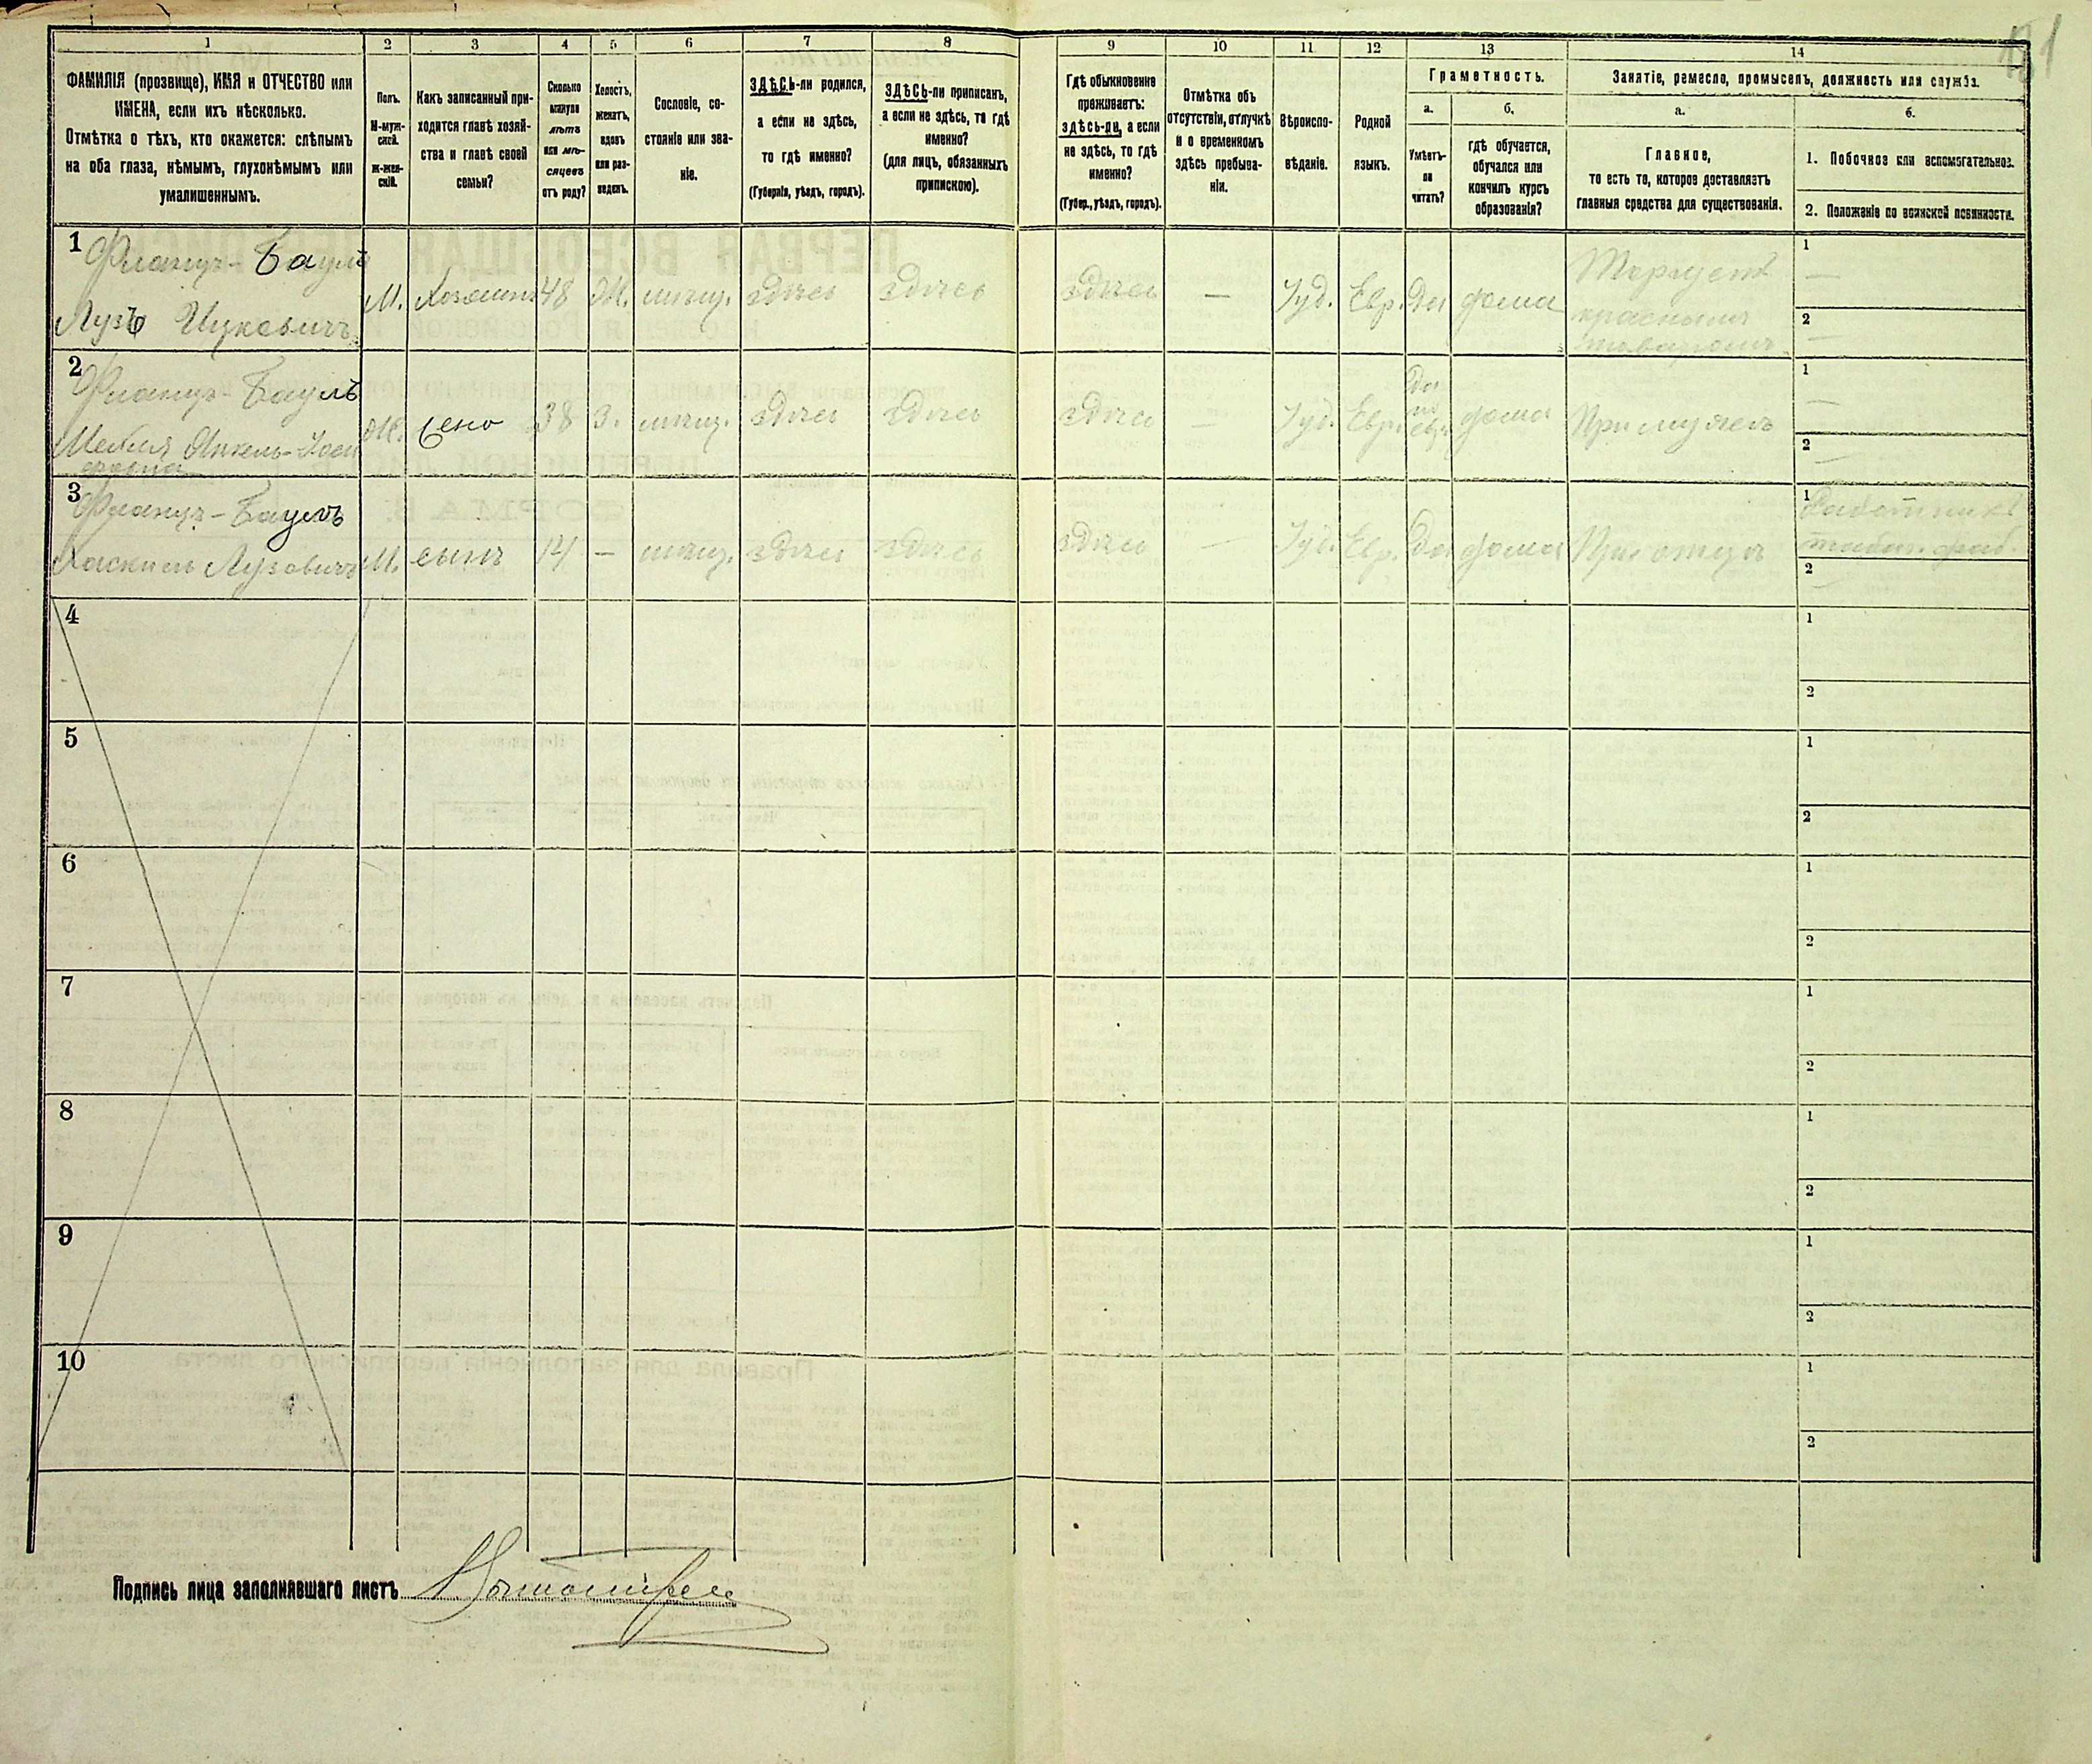 1 2 3 4 5 6 7 8 9 10 11 12 13 14
ФАМИЛІЯ (прозвище), ИМЯ и ОТЧЕСТВО или
ИМЕНА, если ихъ нѣсколько.
Отмѣтка о тѣхъ, кто окажется: слѣпымъ
на оба глаза, нѣмымъ, глухонѣмымъ или
умалишеннымъ.
Полъ.
М-муж-
ской.
Ж-жен-
скій.
Какъ записанный при-
ходится главѣ хозяй-
ства и главѣ своей
семьи?
Сколько
минуло
лѣтъ
или мѣ-
сяцевъ
отъ роду?
Холостъ,
женатъ,
вдовъ
или раз-
веденъ.
Сословіе, со-
стояніе или зва-
ніе.
ЗДѢСЬ-ли родился,
а если не здѣсь,
то гдѣ именно?
(Губернія, уѣздъ, городъ).
ЗДѢСЬ-ли приписанъ,
а если не здѣсь, то гдѣ
именно?
(для лицъ, обязанныхъ
припискою).
Гдѣ обыкновенно
проживаетъ:
здѣсь-ли, а если
не здѣсь, то гдѣ
именно?
(Губер., уѣздъ, городъ).
Отмѣтка объ
отсутствіи, отлучкѣ
и о временномъ
здѣсь пребыва-
ніи.
Вѣроиспо-
вѣданіе.
Родной
языкъ.
Грамотность.
а.
Умѣетъ-
ли
читать?
б.
гдѣ обучается,
обучался или
кончилъ курсъ
образованія?
Занятіе, ремесло, промыселъ, должность или служба.
а.
Главное,
то есть то, которое доставляетъ
главныя средства для существованія.
б.
1. Побочное или вспомогательное.
2. Положеніе по воинской повинности.
1 Францъ-Баумъ
Лузъ Ицковичъ М. Хозяинъ 48 Ж. мѣщ. здѣсь здѣсь здѣсь — Іуд. Евр. Да дома
Торгуетъ
краснымъ
товаромъ
1 —
2 —
2 Францъ-Баумъ
Ж. жена 38 З. мѣщ. здѣсь здѣсь здѣсь — Іуд. Евр. Да по евр. дома При мужѣ
1 —
2 —
3 Францъ-Баумъ
Хаскиль Лузовичъ М. сынъ 14 — мѣщ. здѣсь здѣсь здѣсь — Іуд. Евр. Да дома При отцѣ
1 Работникъ
табач. фаб.
2 —
4 1
2
5 1
2
6 1
2
7 1
2
8 1
2
9 1
2
10 1
2
Подпись лица заполнявшаго листъ